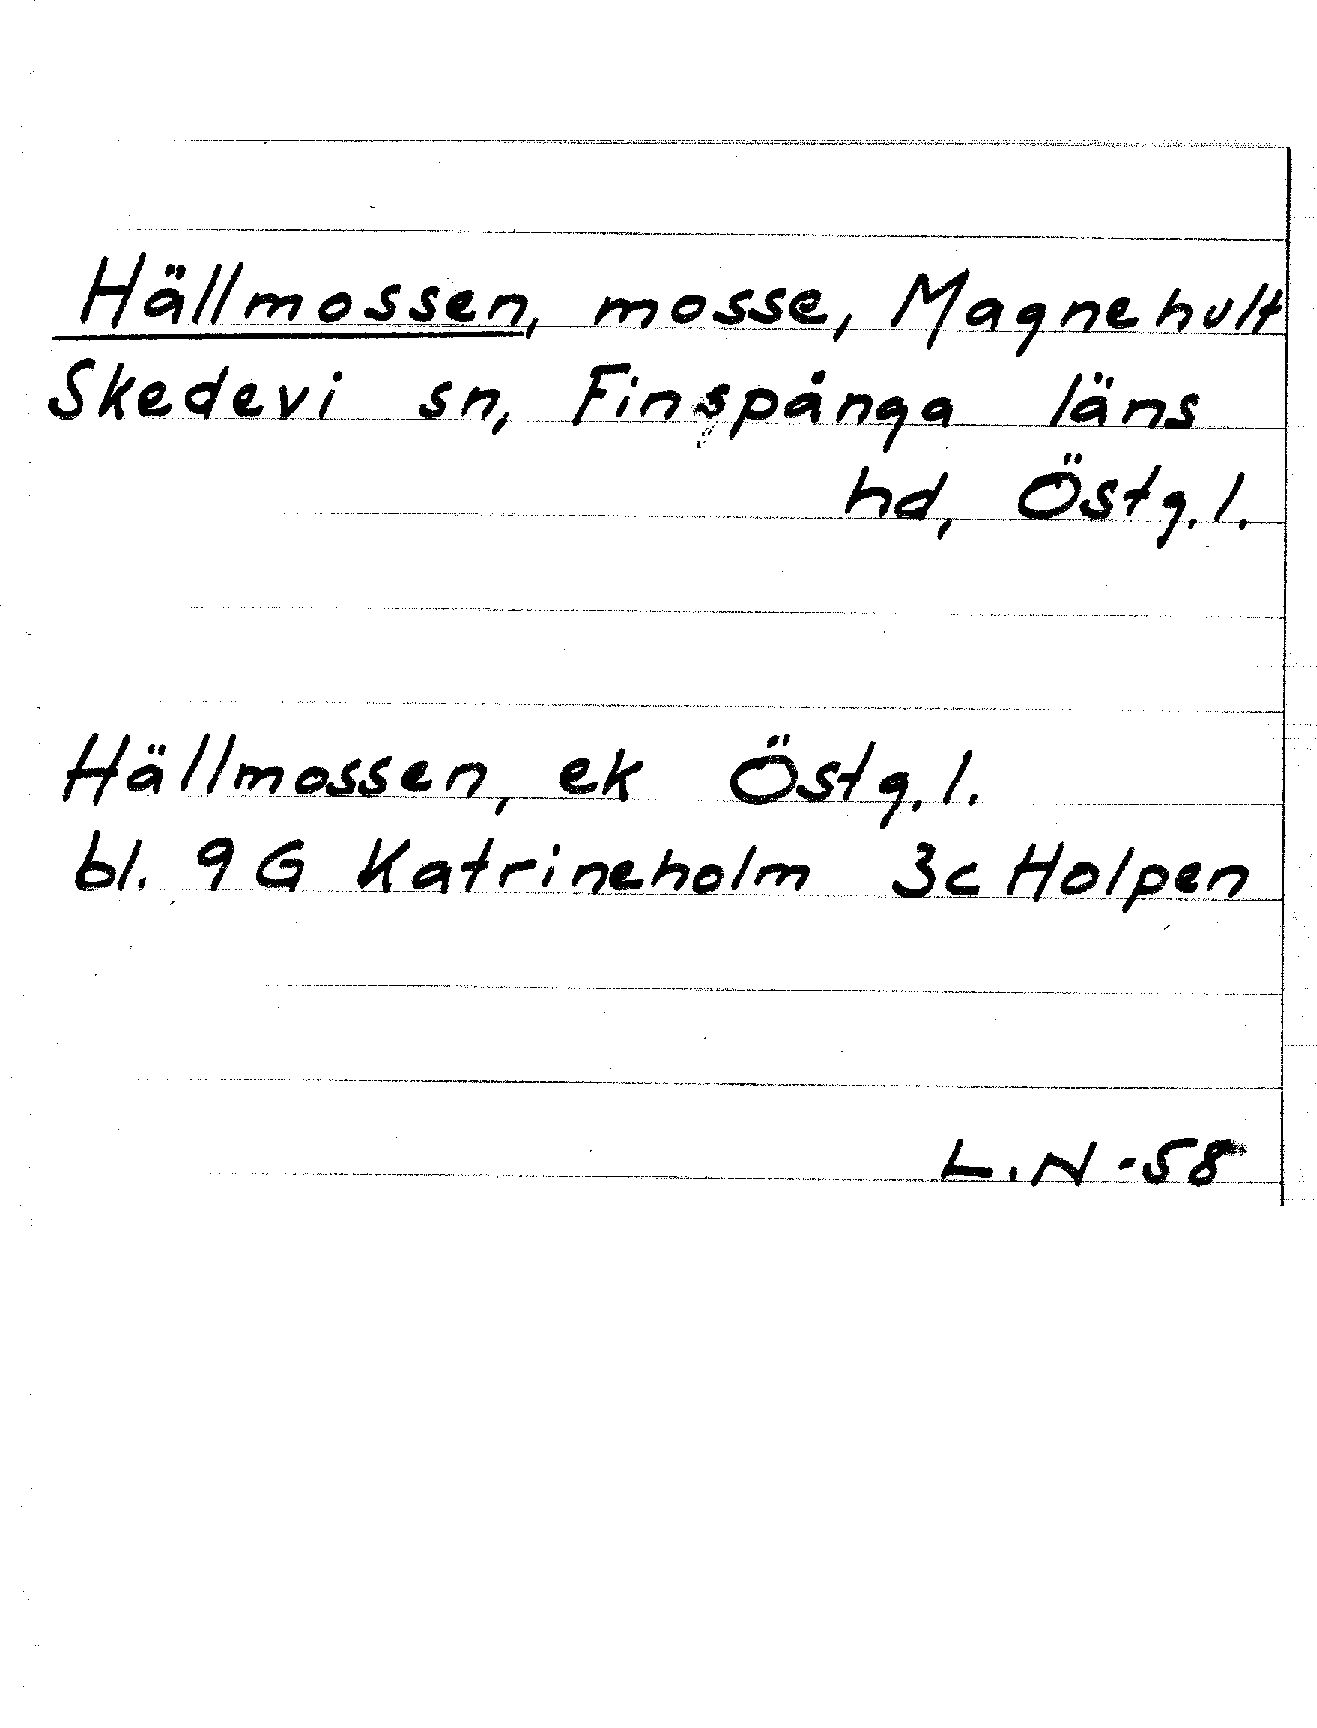 Hällmossen, mosse, Magnehult
Skedevi sn, Finspånga läns
hd, Östg.l.
Hällmossen, ek Östg.l.
bl. 9G Katrineholm 3c Holpen
L.N-58